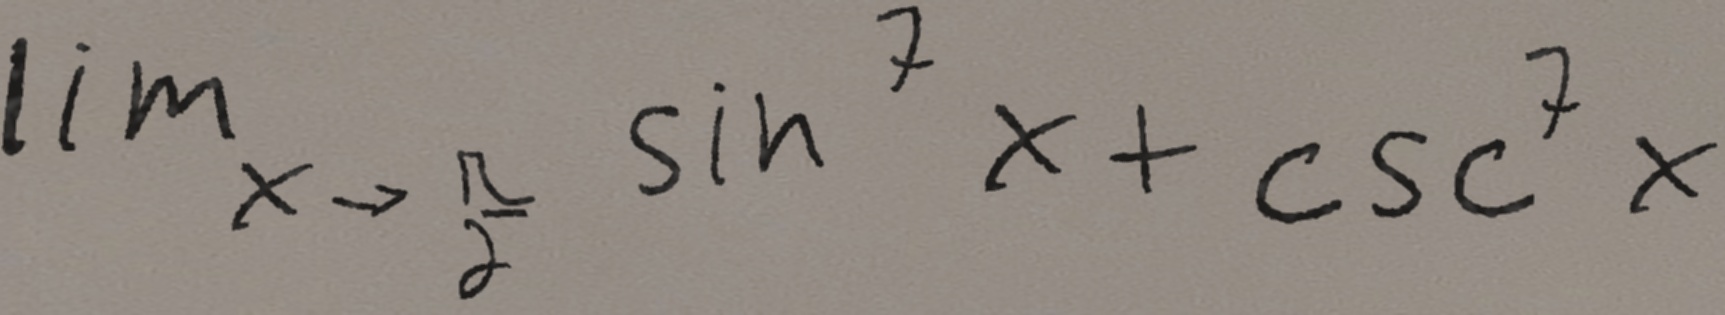 lim x→π/2 sin^7 x + csc^7 x